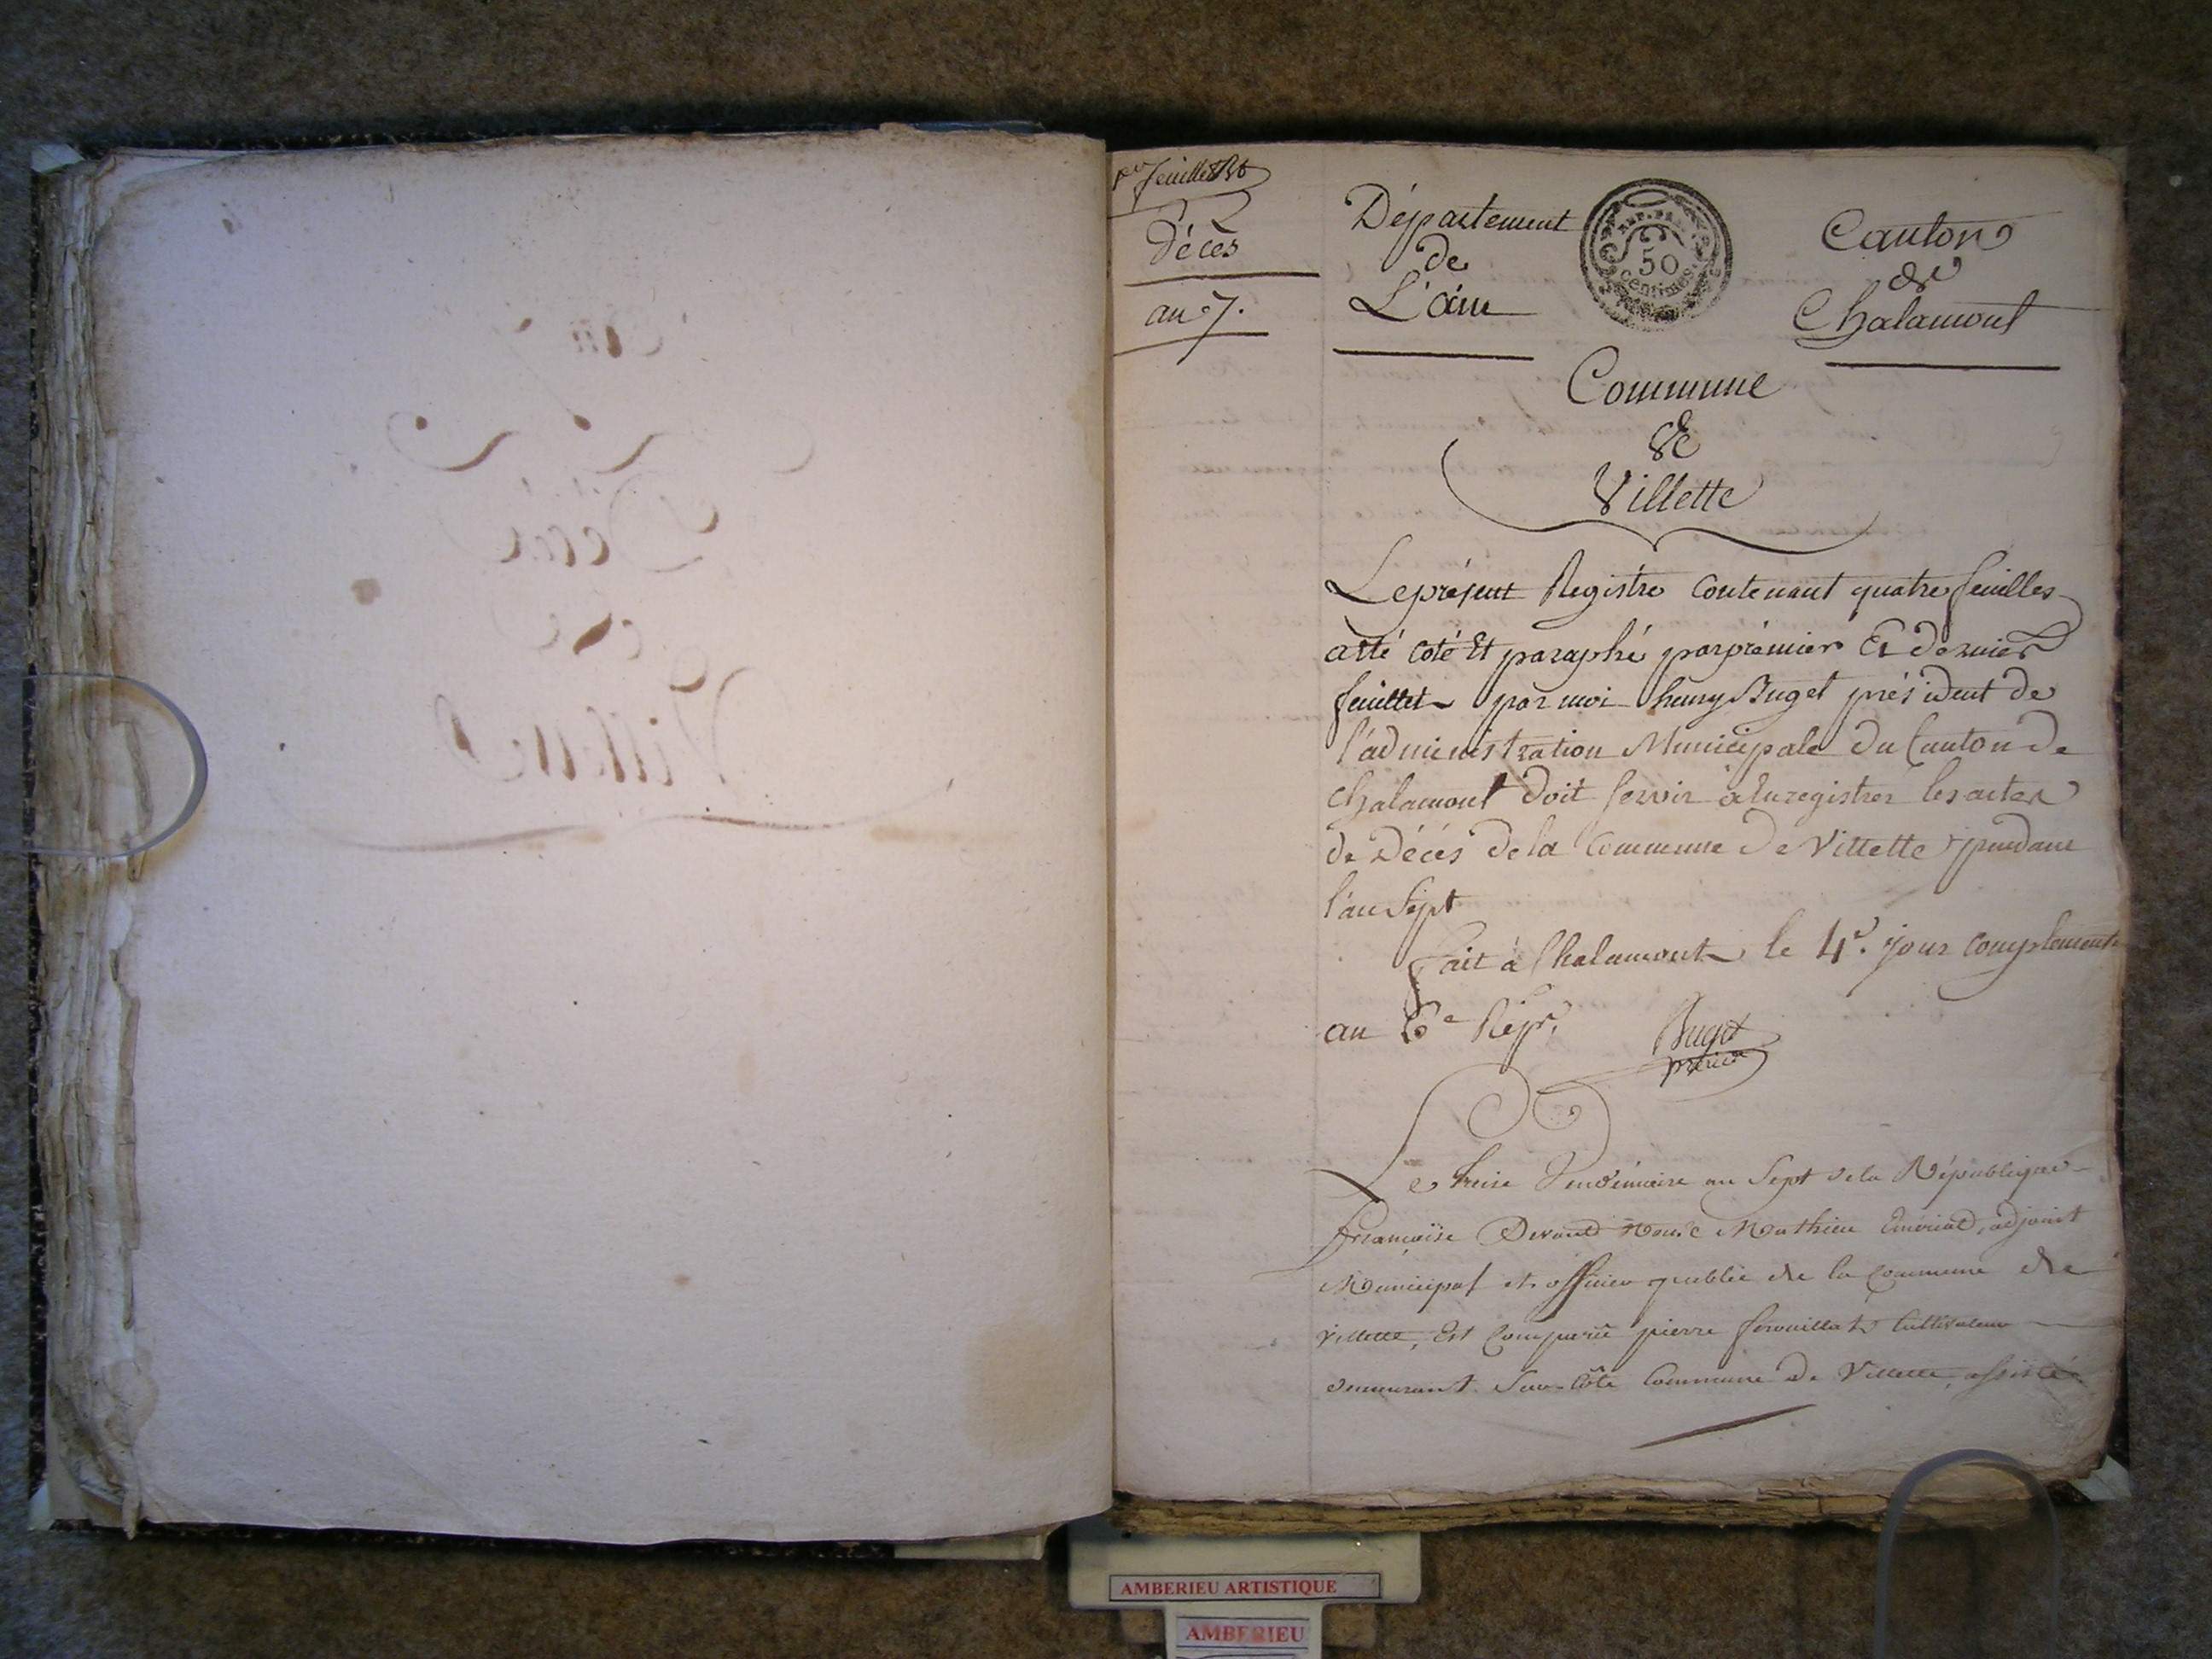 1er feuillet
Décès
an 7.
Département
de
L'ain
REP. FRA.
50
Centimes
Canton
de
Chalamont
Commune
de
Villette
Le présent Registre contenant quatre feuilles
a été coté Et paraphé par prémier Et dernier
feuillet par moi henry Buget présïdent de
l'administration Municipale du Canton de
Chalamont doit servir à Enregistrer les actes
de Décés de la Commune de Villette pendant
l'an Sept
fait à Chalamont le 4e. jour complement.
an 6e Rép.
Buget
présid
Le treize Vendémiaire an Sept de la République
françaïse Devant Nous Mathieu Emériat, adjoint
Municipal et officier public de la commune de
Villette, Est comparû pierre ferouillat Cultivateur
demeurant Sur-Côte Commune de Villette, assisté
AMBERIEU ARTISTIQUE
AMBERIEU